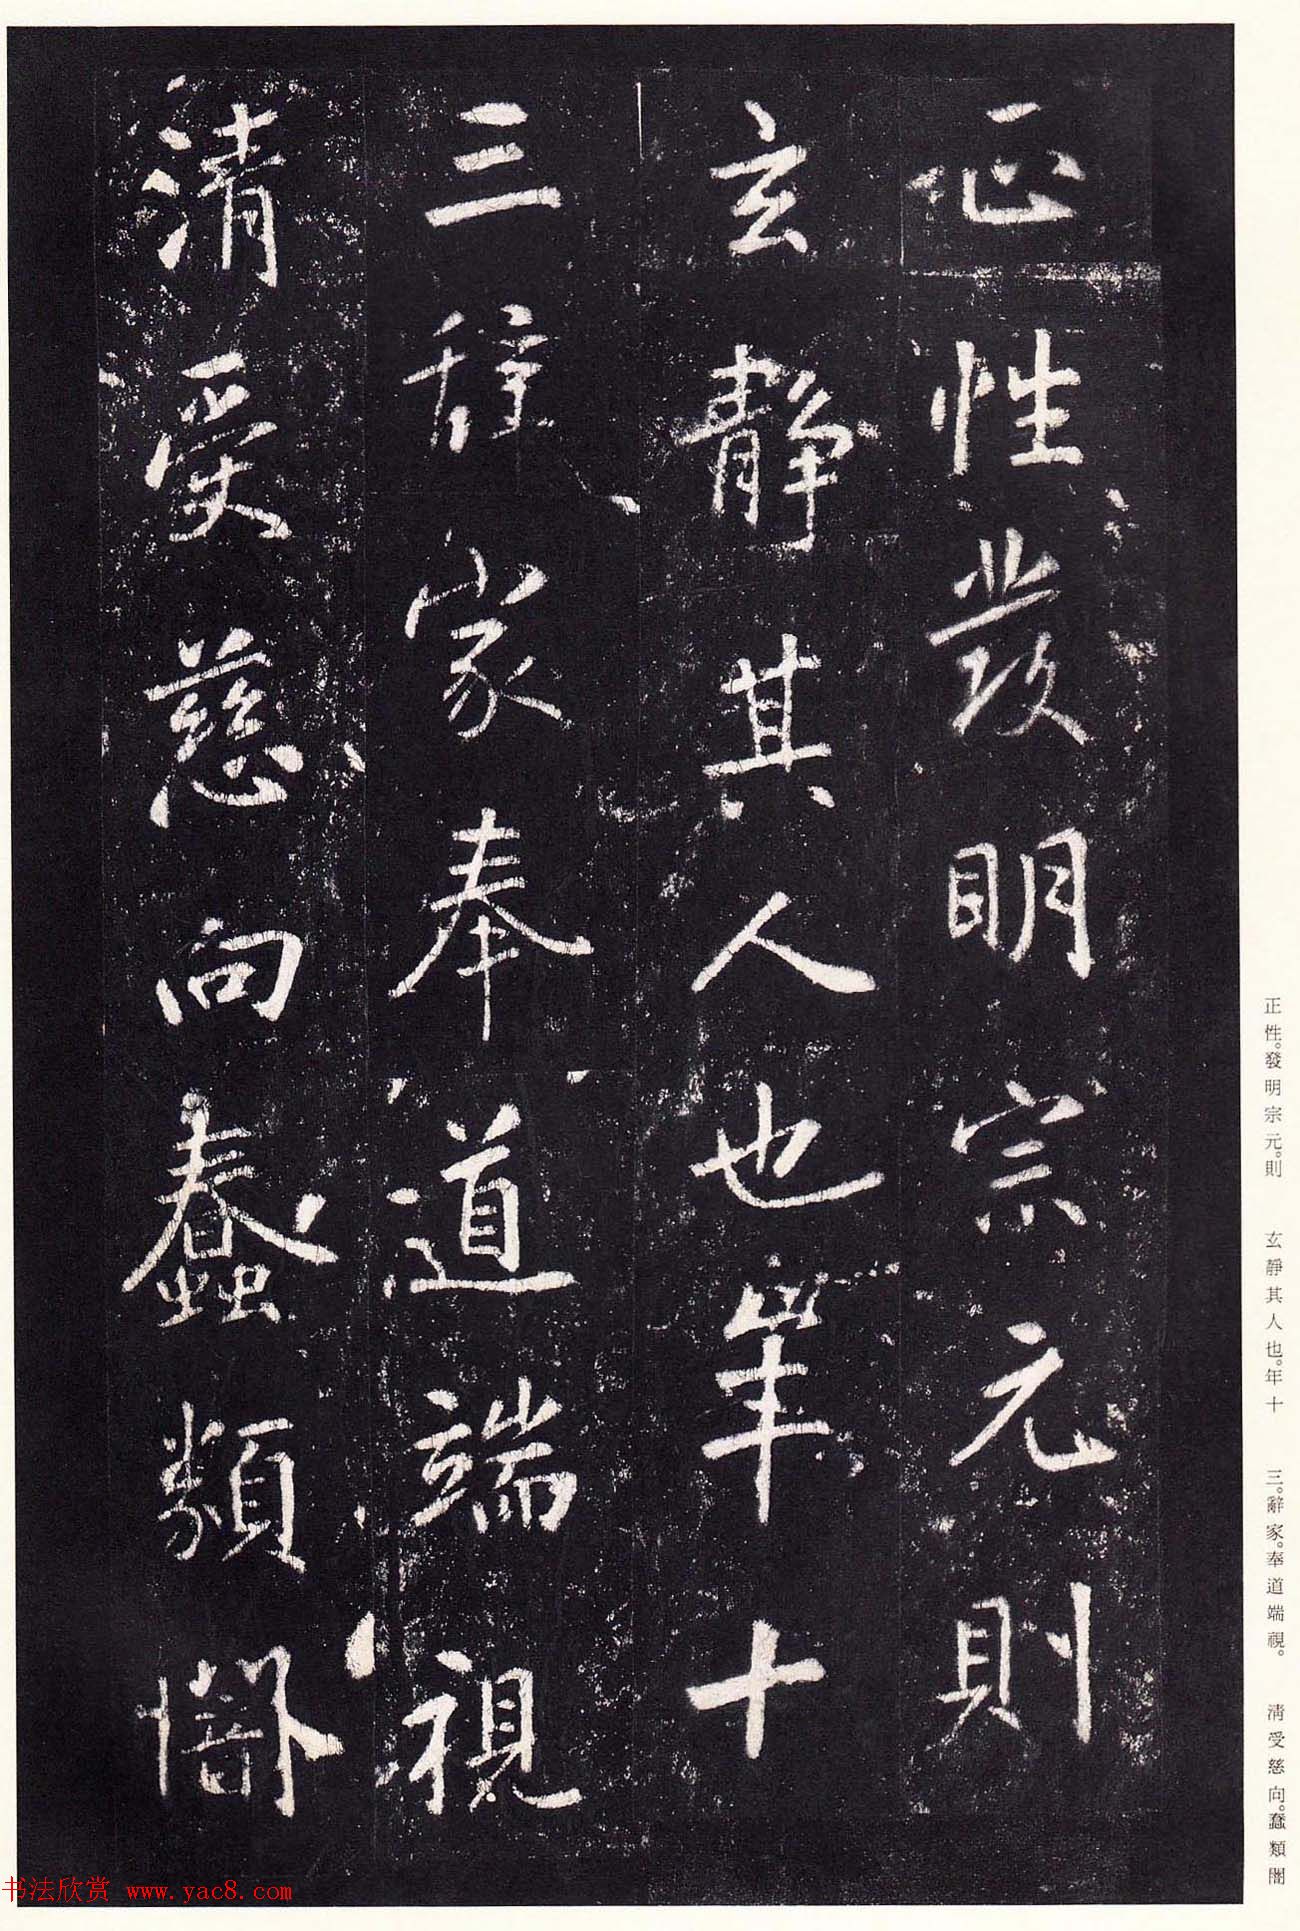 正性發明宗元則
玄靜其人也年十
三辭家奉道端視
清受慈向蠢類闇
正性。發明宗元。則
玄靜其人也。年十
三。辭家。奉道端視。
清受慈向。蠢類闇
书法欣赏 www.yac8.com